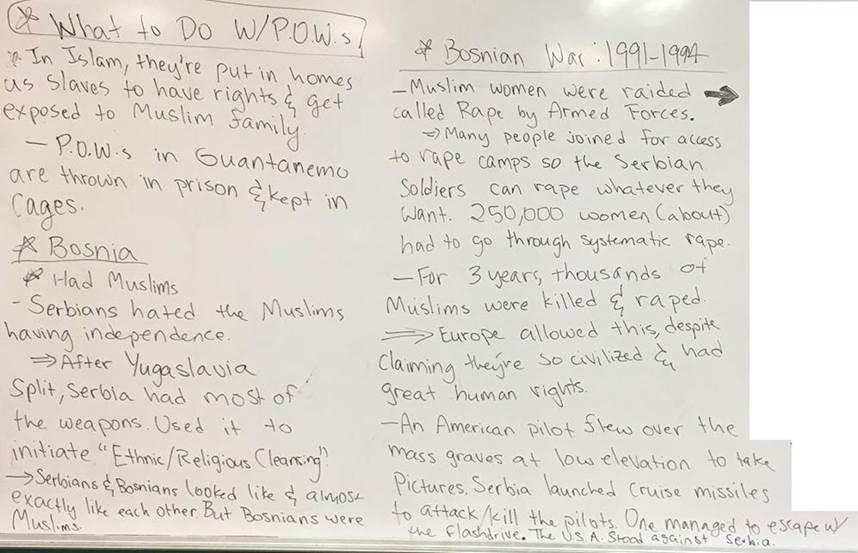 * What to Do W/P.O.W.s
* In Islam, they're put in homes
as slaves to have rights & get
exposed to Muslim family.
- P.O.W.s in Guantanemo
are thrown in prison & kept in
cages.
* Bosnia
* Had Muslims
- Serbians hated the Muslims
having independence.
⇒ After Yugaslavia
Split, Serbia had most of
the weapons. Used it to
initiate "Ethnic/Religious Cleansing"
→ Serbians & Bosnians looked like & almost
exactly like each other. But Bosnians were
Muslims.
* Bosnian War: 1991-1994
- Muslim women were raided →
called Rape by Armed Forces.
⇒ Many people joined for access
to rape camps so the Serbian
Soldiers can rape whatever they
want. 250,000 women (about)
had to go through systematic rape.
- For 3 years, thousands of
Muslims were killed & raped.
⇒ Europe allowed this, despite
claiming they're so civilized & had
great human rights.
- An American pilot flew over the
mass graves at low elevation to take
Pictures. Serbia launched cruise missiles
to attack/kill the pilots. One managed to escape w/
the flashdrive. The U.S.A. stood against Serbia.